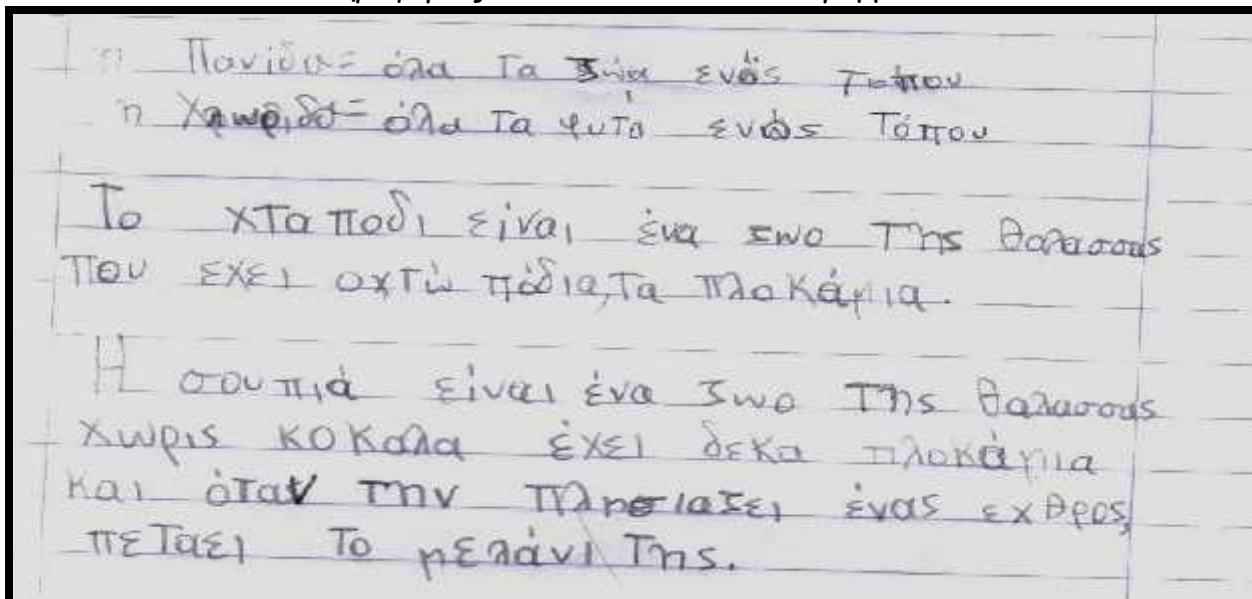 η Πανίδα= όλα τα ζώα ενός τόπου
η Χλωρίδα= όλα τα φυτά ενός Τόπου
Το χταποδι είναι ένα ζωο της θαλασσας
που εχει οχτώ πόδια, τα πλοκάμια.
Η σουπιά είναι ένα ζωο της θαλασσας
χωρις κοκαλα έχει δεκα πλοκάμια
και όταν την πλησιαζει ένας εχθρος,
πεταει το μελάνι της.